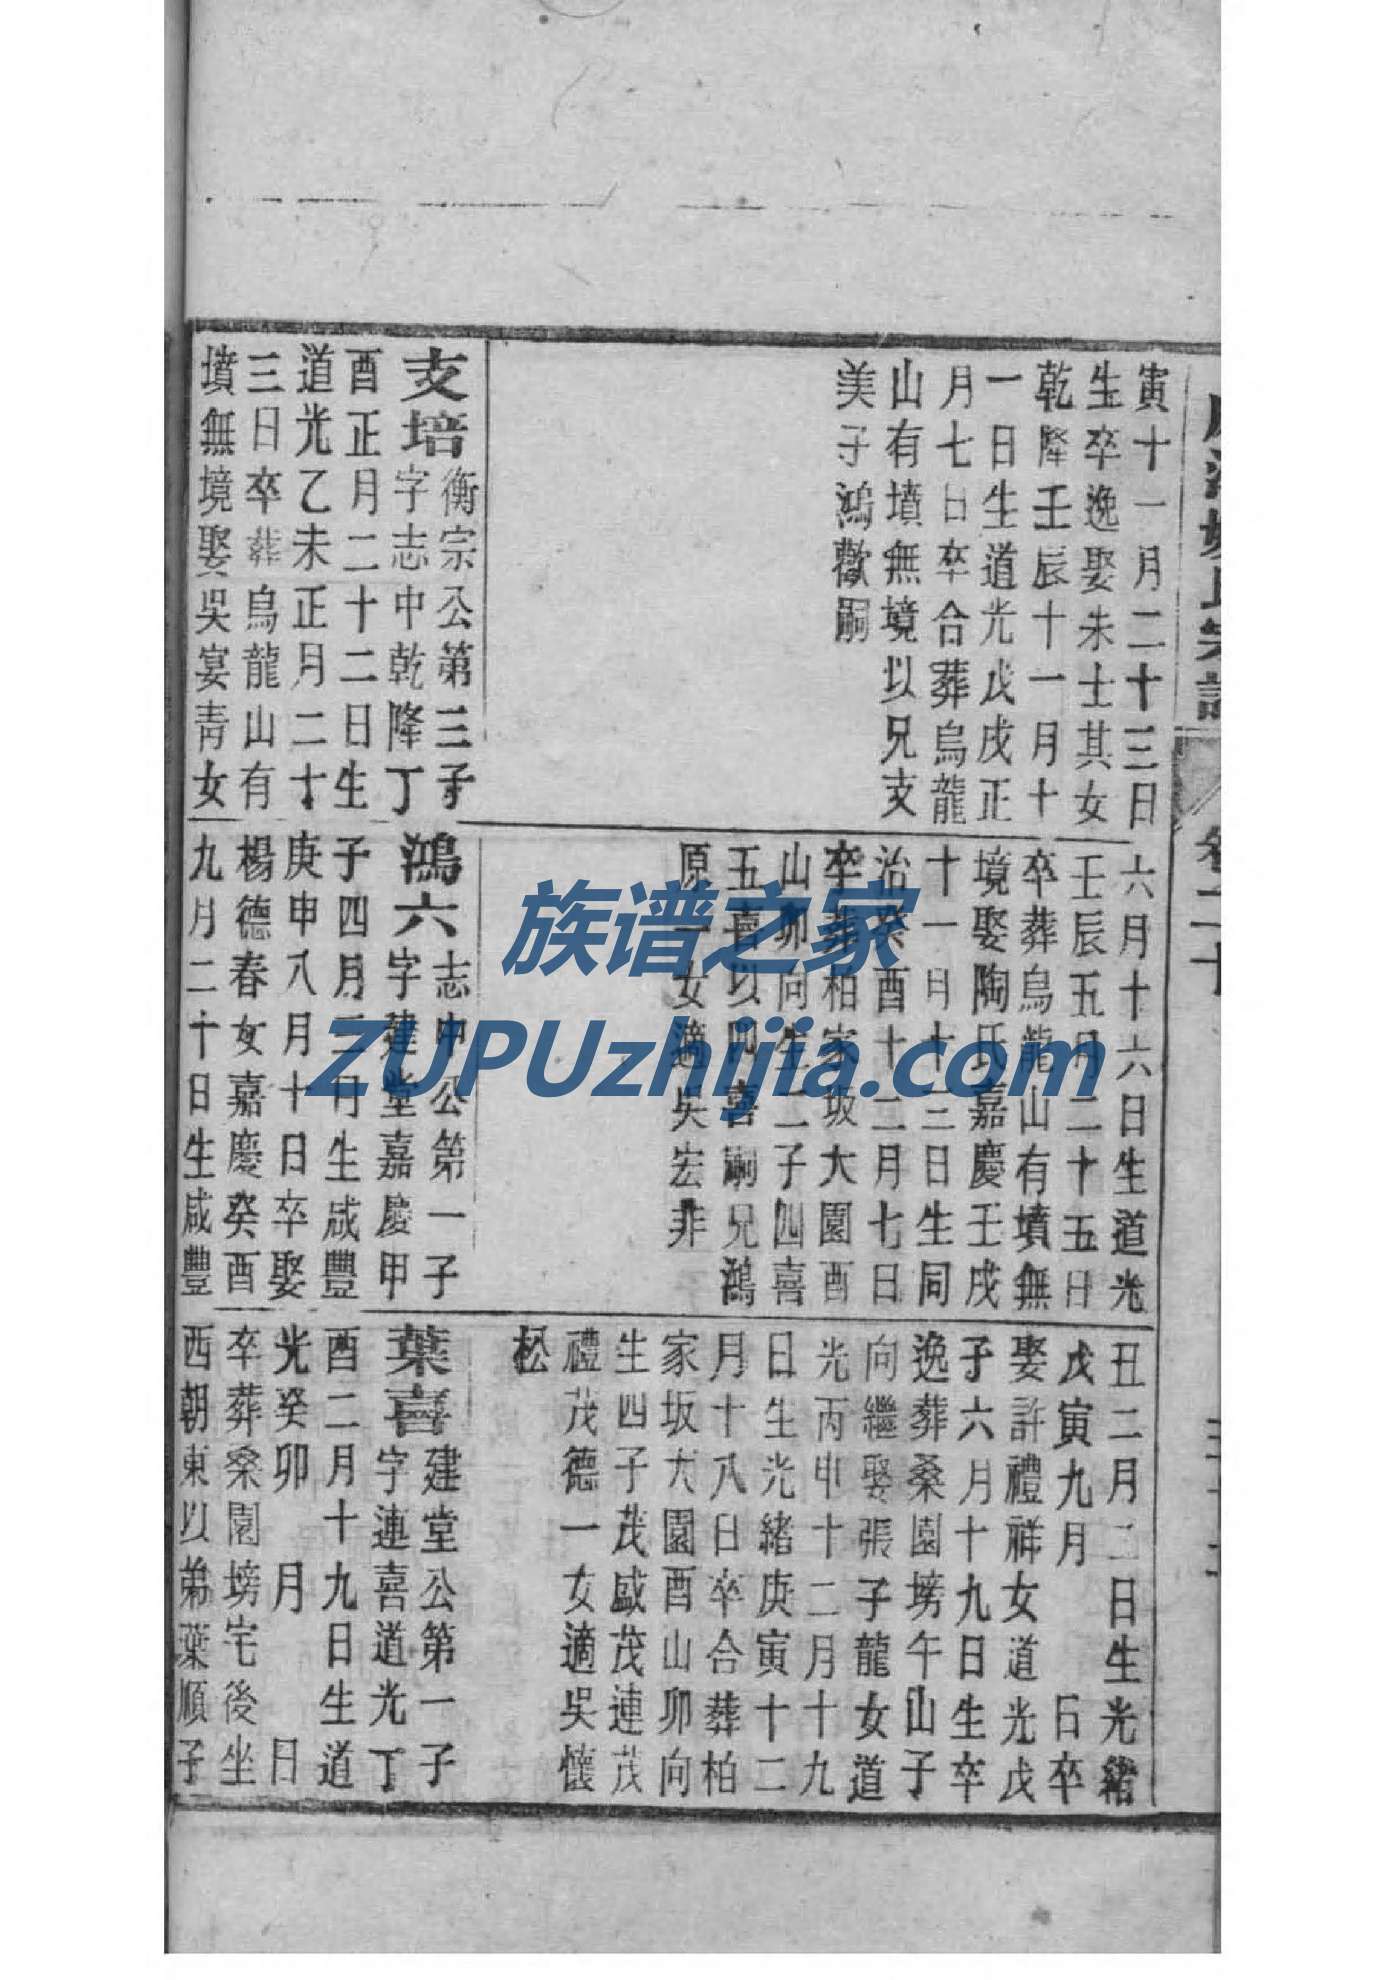 寅十一月二十三日
生卒逸娶朱士其女
乾隆壬辰十一月十
一日生道光戊戌正
月七日卒合葬烏龍
山有墳無境以兄支
美子鴻歡嗣
支培衡宗公第三子
字志中乾隆丁
酉正月二十二日生
道光乙未正月二十
三日卒葬烏龍山有
墳無境娶吳宴青女
六月十六日生道光
壬辰五月二十五日
卒葬烏龍山有墳無
境娶陶氏嘉慶壬戌
十一月十三日生同
治癸酉十二月七日
卒葬柏家坂大園酉
山卯向生二子四喜
五喜以四喜嗣兄鴻
原一女適吳宏非
鴻六志中公第一子
字建堂嘉慶甲
子四月三日生咸豐
庚申八月十日卒娶
楊德春女嘉慶癸酉
九月二十日生咸豐
丑二月二日生光緒
戊寅九月 日卒
娶許禮祥女道光戊
子六月十九日生卒
逸葬桑園塝午山子
向繼娶張子龍女道
光丙申十二月十九
日生光緒庚寅十二
月十八日卒合葬柏
家坂大園酉山卯向
生四子茂盛茂連茂
禮茂德一女適吳懷
松
葉喜建堂公第一子
字連喜道光丁
酉二月十九日生道
光癸卯 月 日
卒葬桑園塝宅後坐
西朝東以弟葉順子
族谱之家
ZUPUzhijia.com